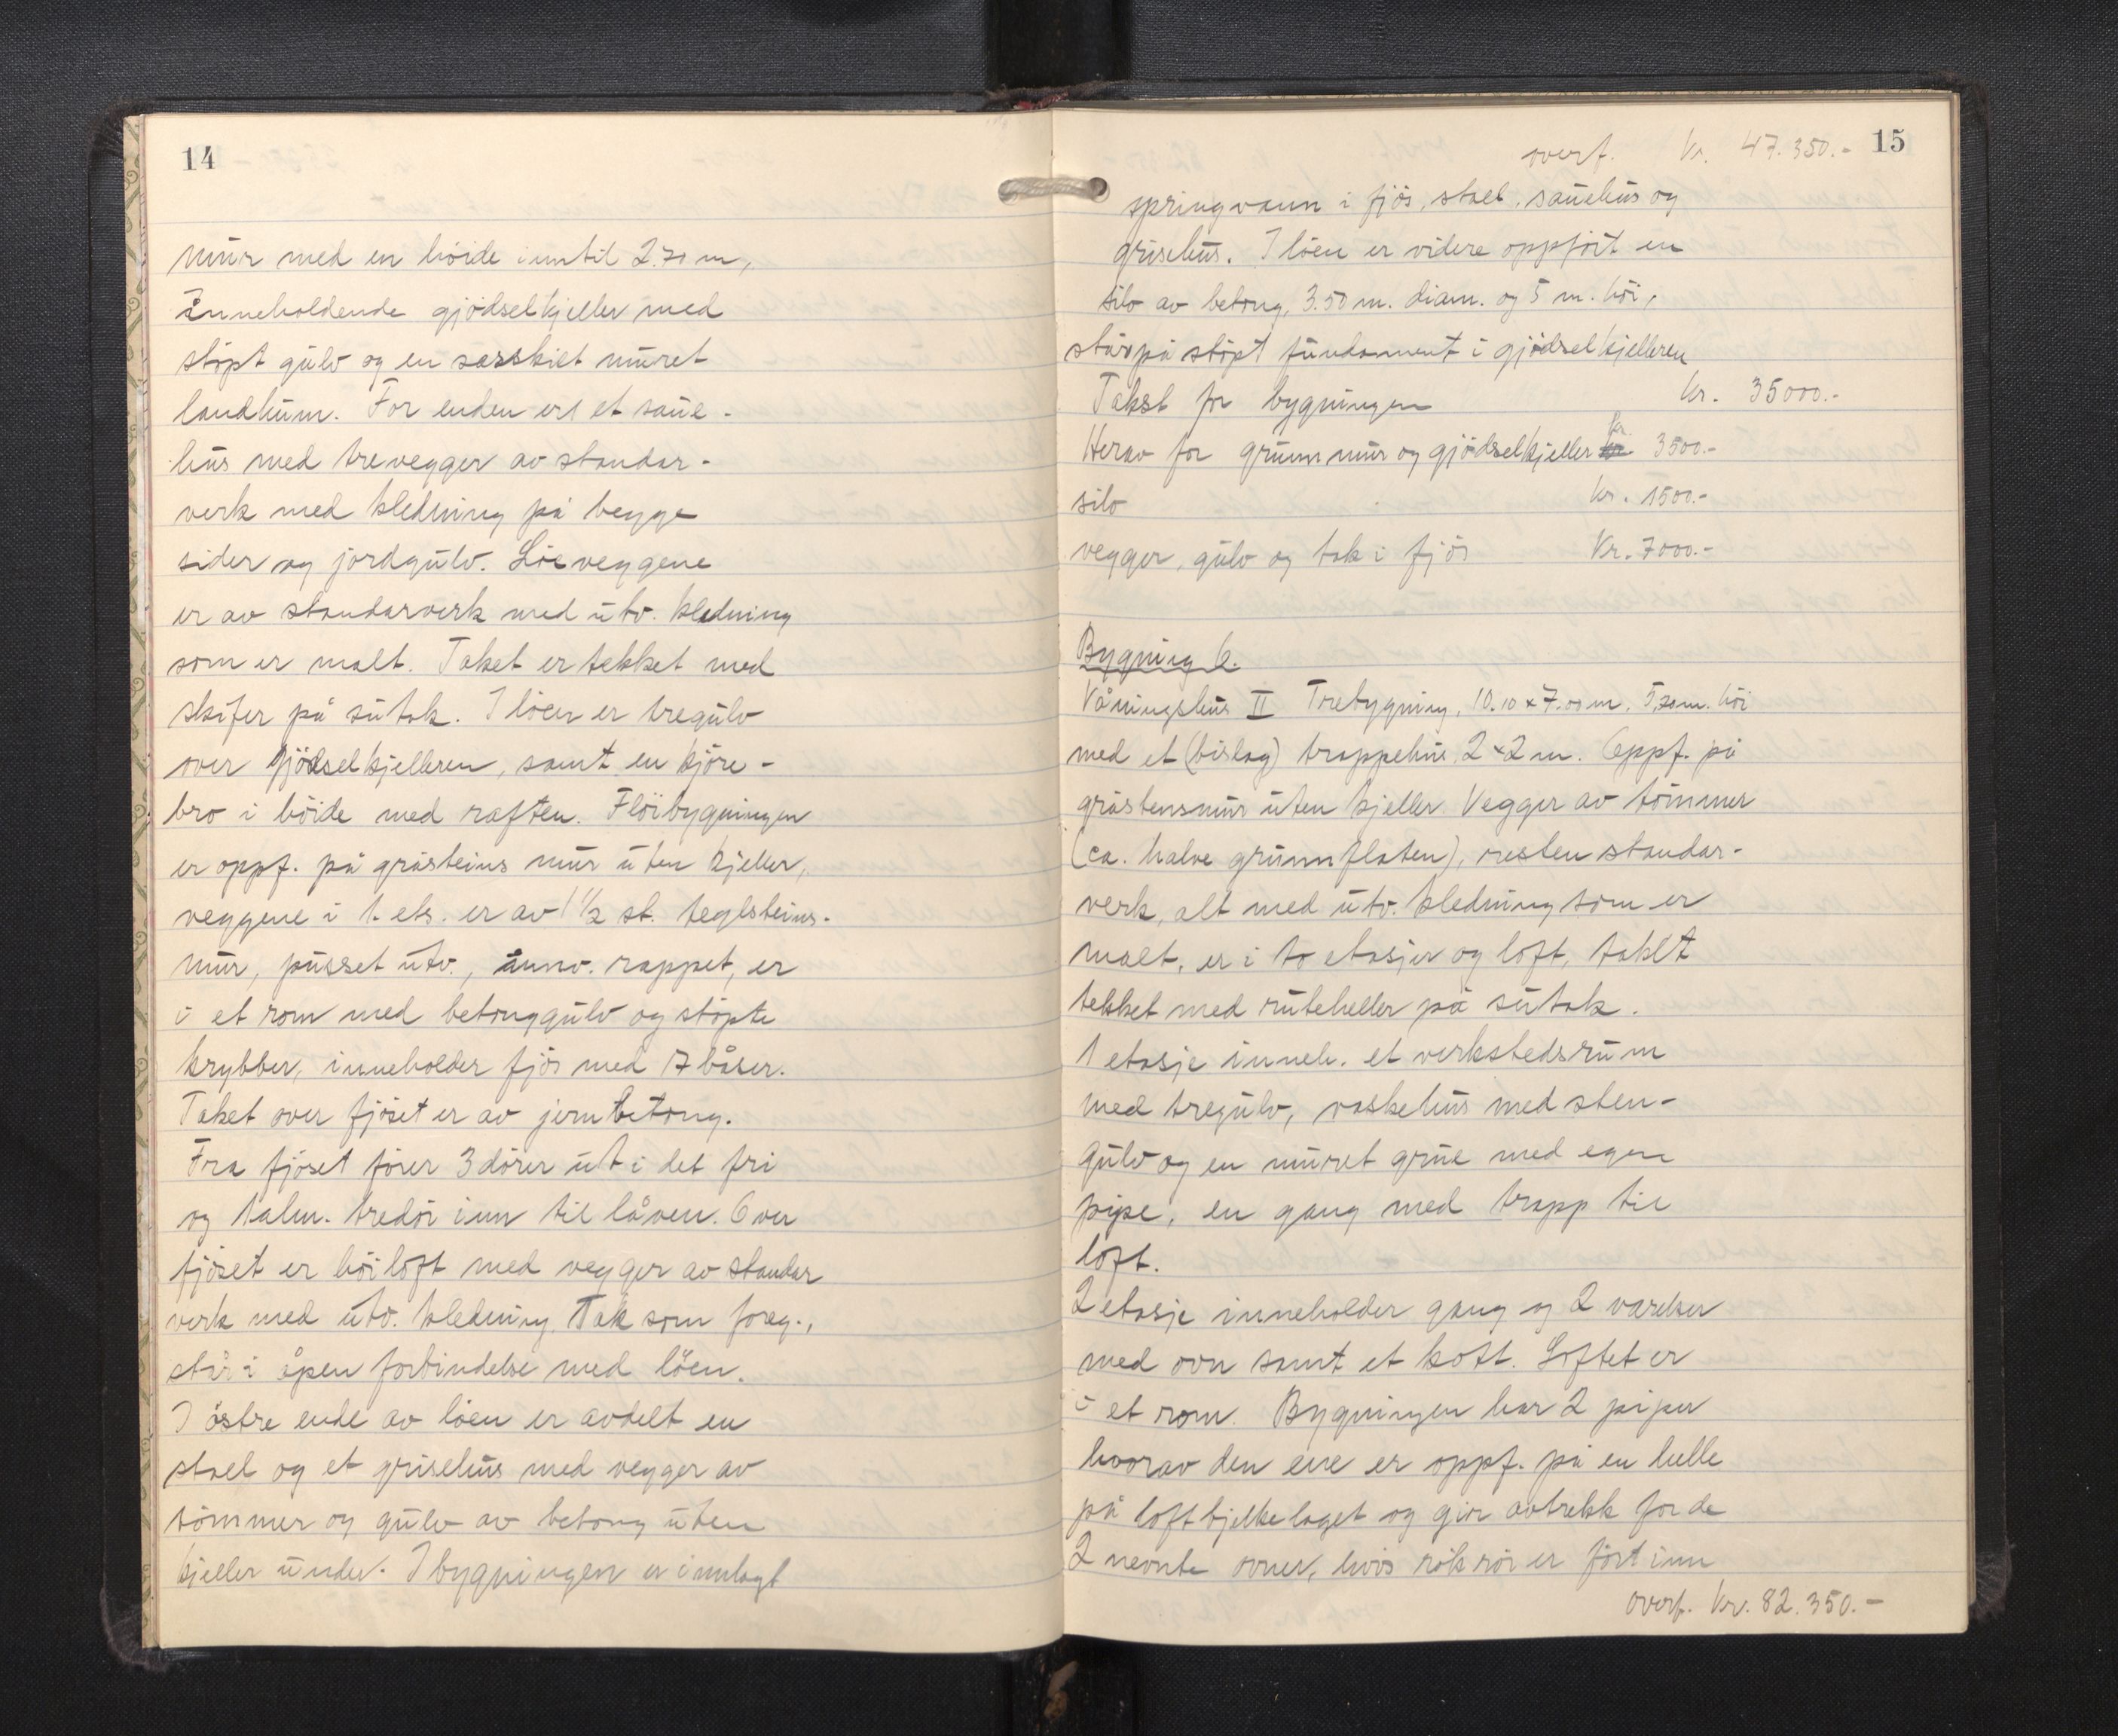 14
mur med en höide inntil 2.70 m,
inneholdende gjödselkjeller med
stöpt gulv og en særskilt muret
landkum. For enden er et saue-
hus med trevegger av standar-
verk med kledning på begge
sider og jordgulv. Löeveggene
er av standarverk med utv. kledning
som er malt. Taket er tekket med
skifer på sutak. I löen er tregulv
over gjödselkjelleren, samt en kjöre-
bro i höide med raften. Flöibygningen
er oppf. på gråsteins mur uten kjeller,
veggene i 1. ets. er av 1 1/2 st. teglsteins-
mur, pusset utv., innv. rappet, er
i et rom med betonggulv og stöpte
krybber, inneholder fjös med 17 båser.
Taket over fjöset er av jernbetong.
Fra fjöset förer 3 dörer ut i det fri
og 1 alm. tredör inn til låven. Over
fjöset er höiloft med vegger av standar
verk med utv. kledning. Tak som foreg.,
står i åpen forbindelse med löen.
I östre ende av löen er avdelt en
stall og et grisehus med vegger av
tömmer og gulv av betong uten
kjeller under. I bygningen er innlagt
15
overf. Kr. 47.350.-
springvann i fjös, stall, sauehus og
grisehus. I löen er videre oppfört en
silo av betong, 3.50 m. diam. og 5 m. höi,
står på stöpt fundament i gjödselkjelleren
Takst for bygningen Kr. 35000.-
Herav for grunnmur og gjödselkjeller kr. 3500.-
silo Kr. 1500.-
vegger, gulv og tak i fjös Kr. 7000.-
Bygning 6.
Våningshus II Trebygning, 10.10 x 7.00 m, 5,20 m. höi
med et (bislag) trappehus 2 x 2 m. Oppf. på
gråstensmur uten kjeller. Vegger av tömmer
(ca. halve grunnflaten), resten standar-
verk, alt med utv. kledning som er
malt, er i to etasjer og loft, taket
tekket med ruteheller på sutak.
1 etasje inneh. et verkstedsrum
med tregulv, vaskehus med sten-
gulv og en muret grue med egen
pipe, en gang med trapp til
loft.
2 etasje inneholder gang og 2 værelser
med ovn samt et kott. Loftet er
i et rom. Bygningen har 2 piper
hvorav den ene er oppf. på en helle
på loftbjelkelaget og gir avtrekk for de
2 nevnte ovner, hvis rökrör er fört inn
overf. Kr. 82.350.-